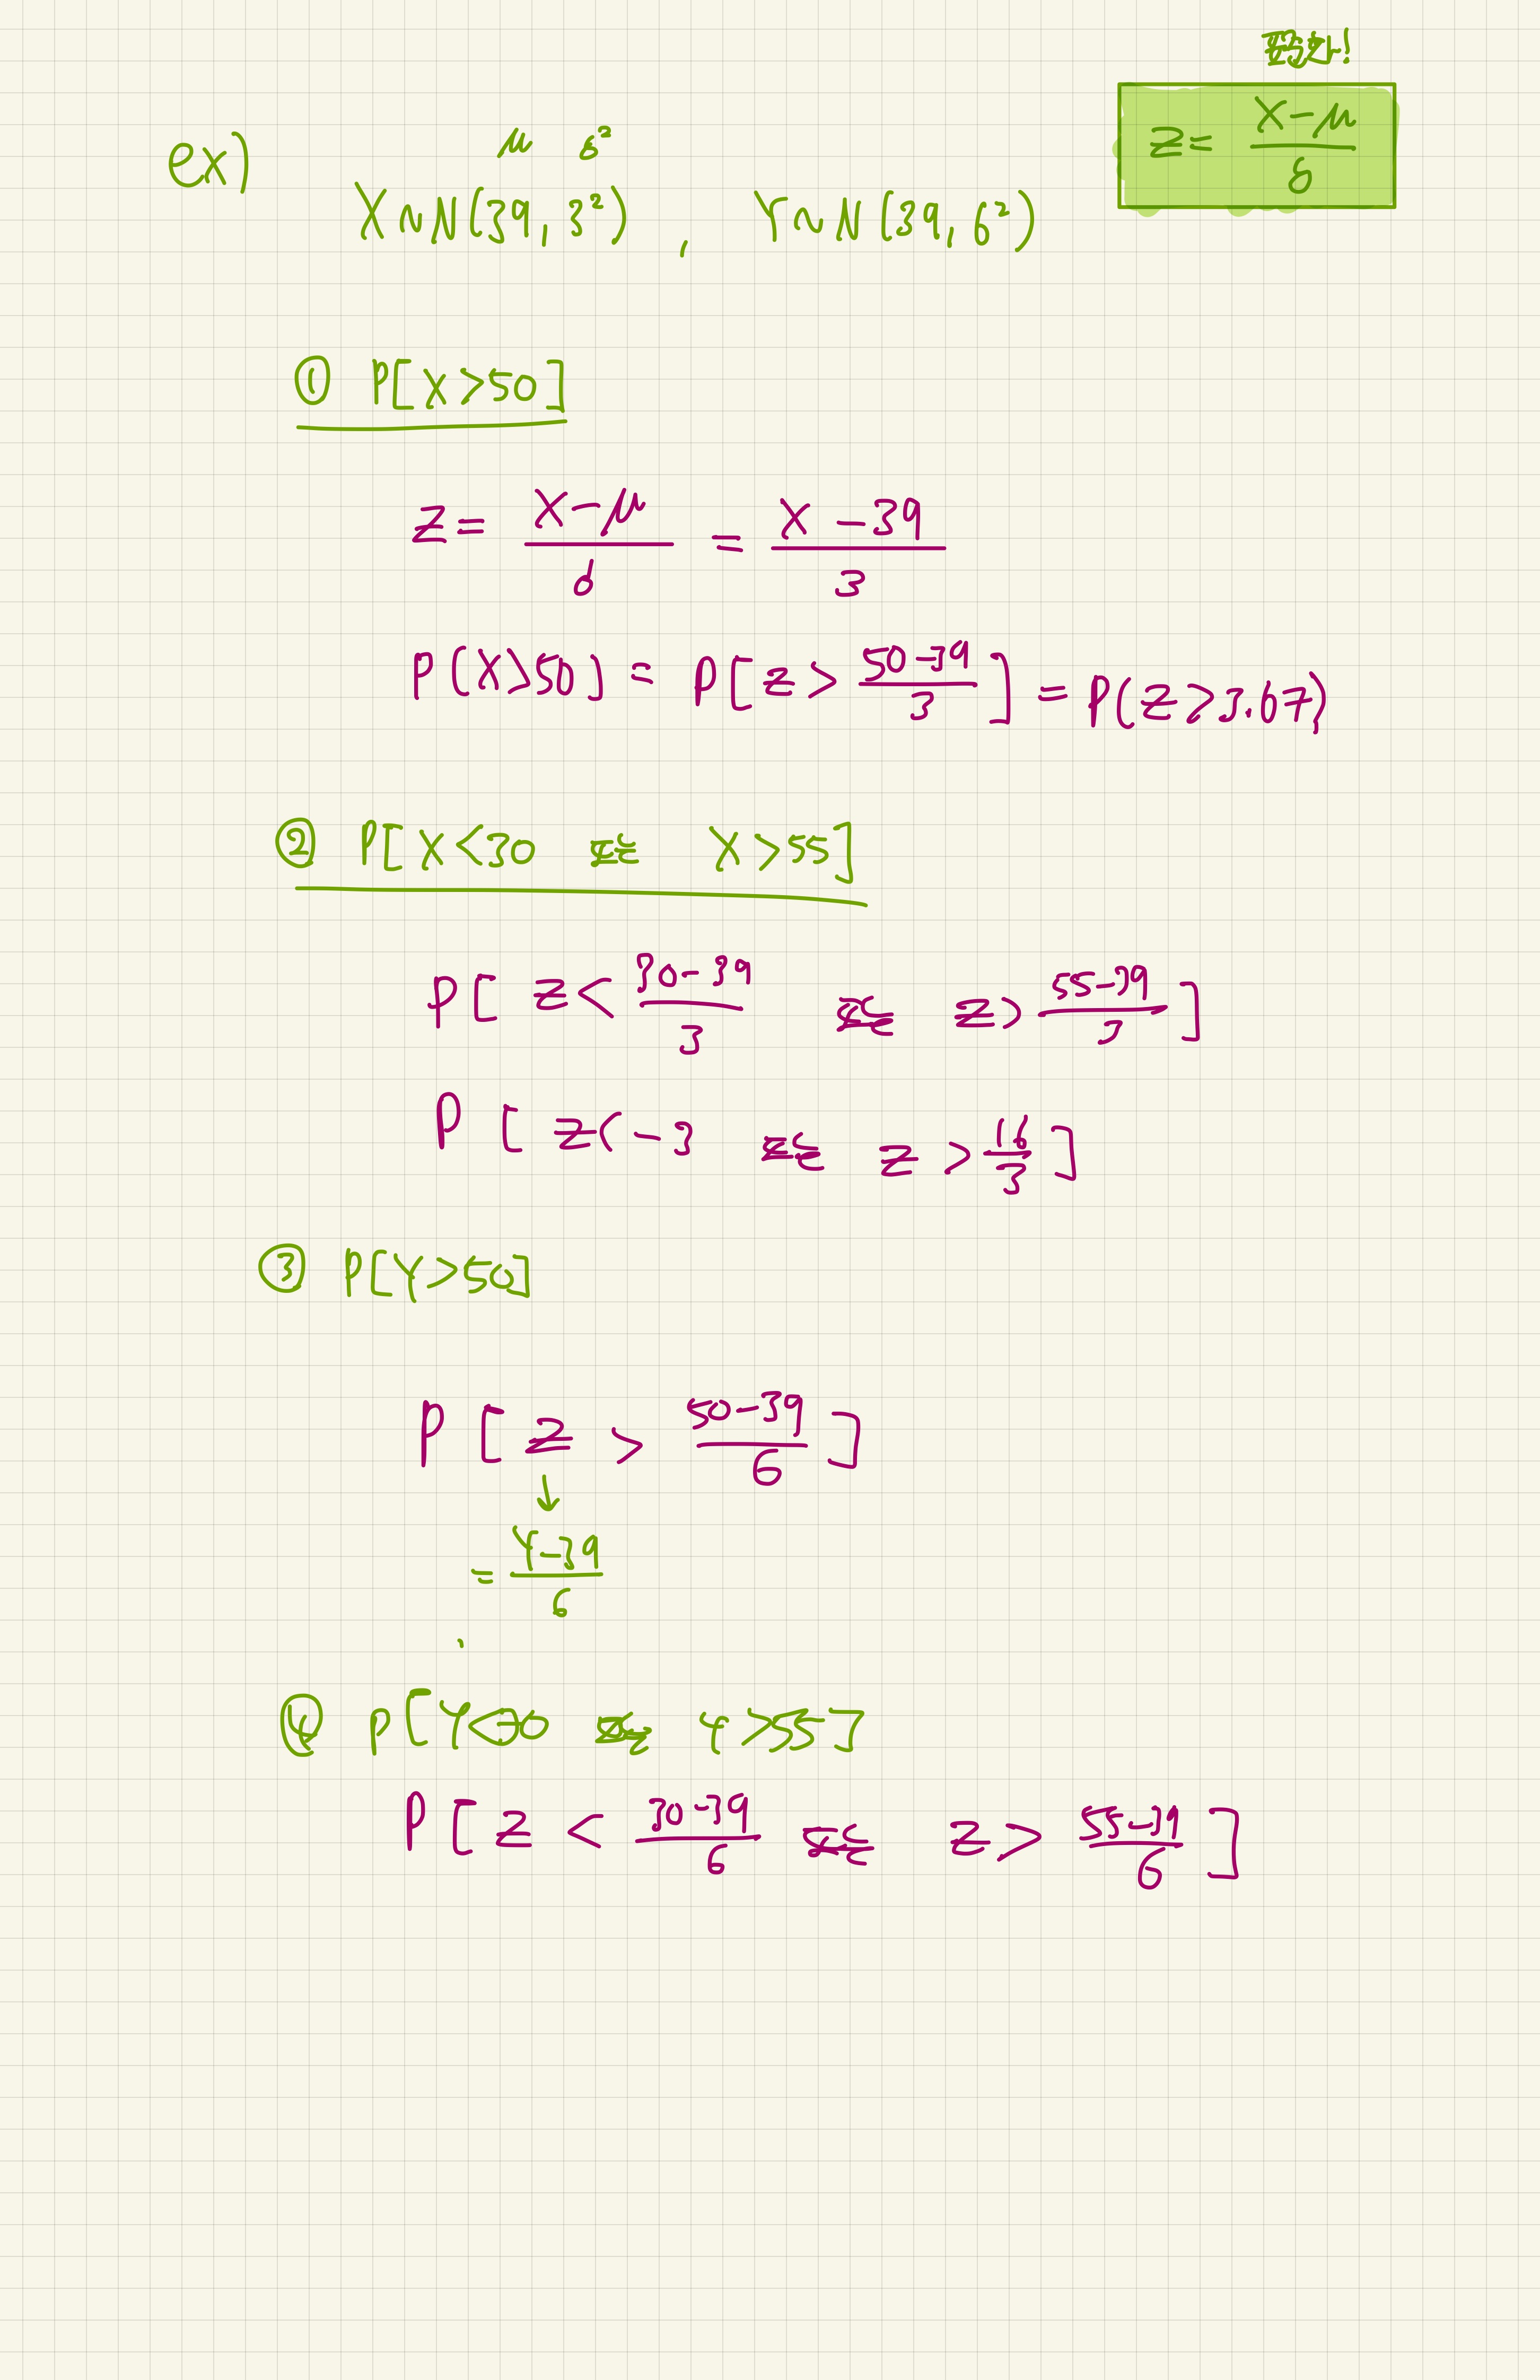 표준화!
Z = (X-μ)/σ
ex)
μ σ²
X~N(39, 3²) , Y~N(39, 6²)
① P[X>50]
Z = (X-μ)/σ = (X-39)/3
P(X>50) = P[Z > (50-39)/3] = P(Z>3.67)
② P[X<30 또는 X>55]
P[Z < (30-39)/3 또는 Z > (55-39)/3]
P[Z<-3 또는 Z > 16/3]
③ P[Y>50]
P[Z > (50-39)/6]
↓
= (Y-39)/6
④ P[Y<30 또는 Y>55]
P[Z < (30-39)/6 또는 Z > (55-39)/6]